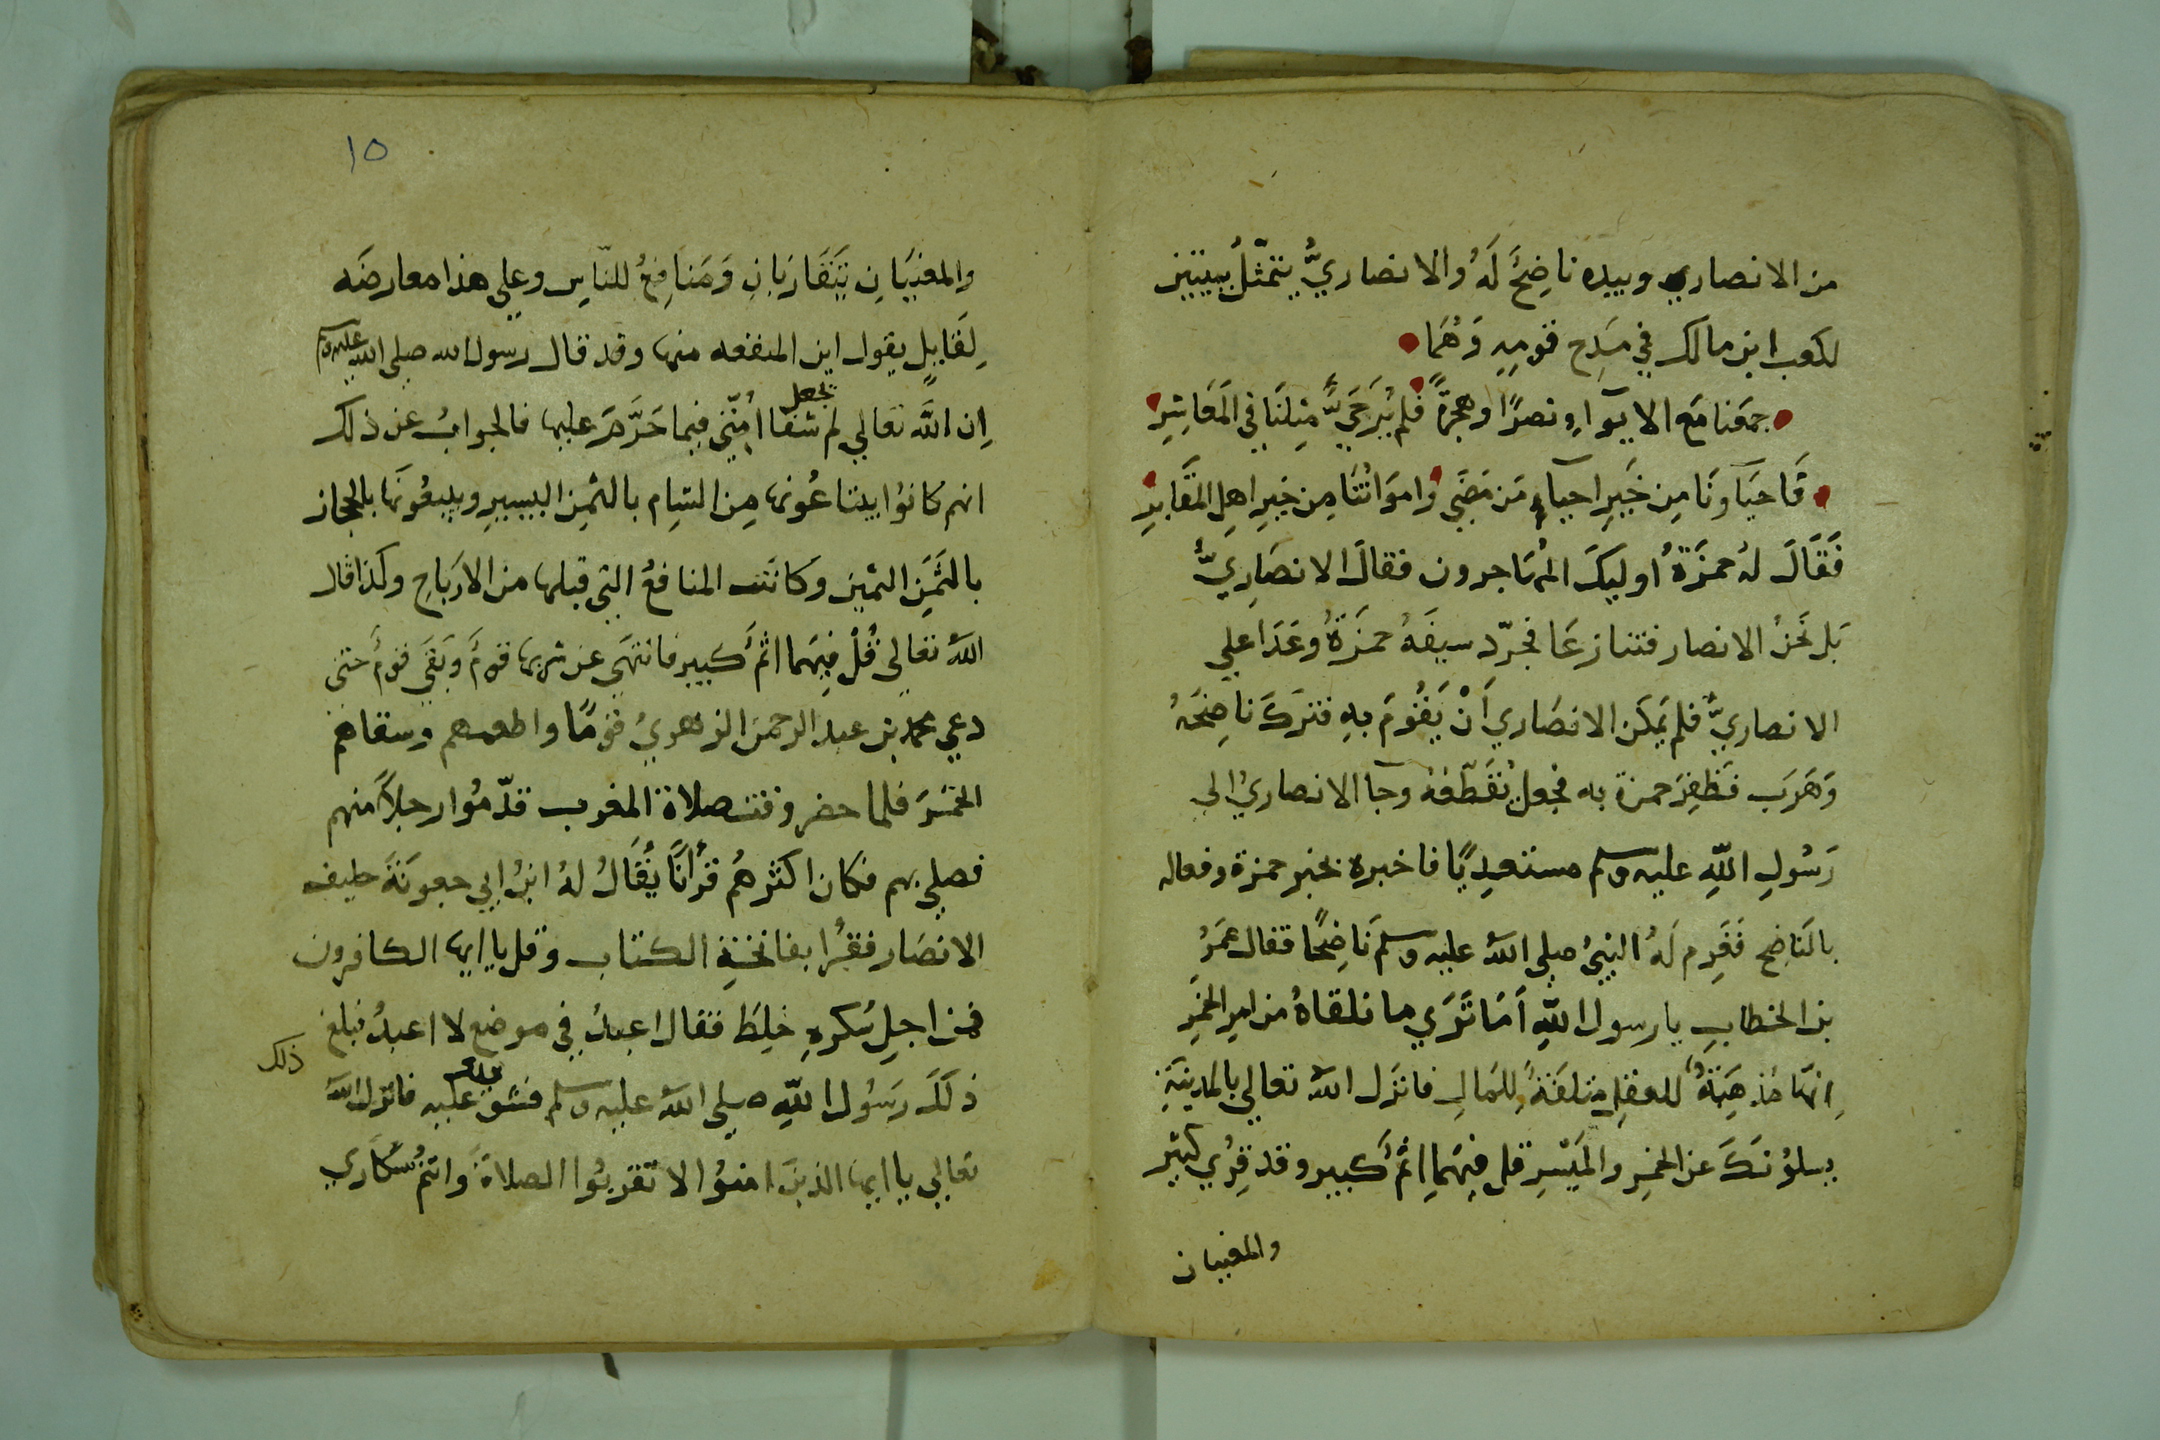 من الانصاري وبيده ناضِحٌ لَهُ والانصاريُّ يتمثّلُ ببيتين
لكعب ابن مالك في مَدِح قومِهِ وَهُمَا
جمعَنا مَع الايوآءِ ونصرًا وهجرةً فلم يُرَ حَيٌّ مِثلَنَا في المَعَاشِرِ
فَاحيَآونَا مِن خَيرِ احياءِ مَن مَضَى وامَوَاتُنَا مِن خيرِ اهلِ المقَابِرِ
فَقَالَ لهُ حمزَةُ اوليكَ المُهَاجرون فقالَ الانصَارِيُّ
بَل نَحنُ الانصار فتنازعَا فجرّد سيفَهُ حمزَةُ وعَدَا علي
الانصاريُّ فلم يمكن الانصَاري أَنْ يَقُومَ بهِ فتركَ ناضِحَهُ
وَهَرَب فَظَفِرَ حمزة به فجعل يُقَطّعُهُ وجآ الانصاريُ الي
رَسُولِ اللّهِ عليه وسلم مستعديًا فاخبره بخبر حمزة وفعاله
بالنَاضِح فَغَرِم لَهُ النبيُ صلي اللهُ عليه وسلم نَاضِحًا فقال عمَرُ
بن الخطابِ يا رسول اللّهِ أَمَا تَرَي ما نلقاهُ من امرِ الخمَرِ
اِنّهَا مُذهِبَةٌ للعقلِ متلفَةٌ لِلمَالِ فانَزَل اللهُ تعالي بالمدينَةِ
يسلوُنكَ عن الخمرِ والمَيْسِرِ قل فِيهِمَا اثمٌ كبير وقد قِرُي كثير
والمغنيان
١٥
والمعنيَانِ يَتَقَارَبَانِ وَمَنَافِعُ للنّاسِ وعلي هذا معارضَه
لِقَايلٍ يقول اين المنفعه منها وقد قال رسول الله صلي الله عليه وسلم
اِن اللَّهَ تعالي لم يجعل شفَا اُمّتي فيما حَرَّمَ عليها فالجوابُ عن ذلك
انهم كانوُا يبتاعُونها مِن الشام بالثمِن اليسيرِ ويبيعُونَها بالحجاز
بالثَمَنِ الثمين وَكانَت المنافعُ التي قبلها من الارَباحِ وكذا قال
اللهُ تعالي قُلْ فِيهِمَا اثمٌ كبير فانتهَي عن شربها قومٌ وَبَقَيَ قومٌ حتي
دعي محمد بن عبد الرحمن الزهريُ قومًا واطعمهم وسقاهُم
الخَمرَ فلما حضر وقت صلاة المغرب قدّمُوا رجلاً منهم
فصلي بهم فكان اكثرهُم قرُآنًا يُقَالُ لهُ ابنُ ابي جعونَةَ حليف
الانصَار فقرُا بفاتحَةِ الكتاب وقل ياايها الكافرون
فمن اجلِ سُكرهِ خلِطَ فقال اعبدُ في موضع لا اعبدُ فبلغ
ذلك
ذلكَ رَسُول اللّهِ صلي اللهُ عليه وسلم فشق عليه فانزل اللَّهُ
تعالي يا ايها الذينَ امنوُا لا تقربوُا الصلاةَ وانتُم سُكَارَي